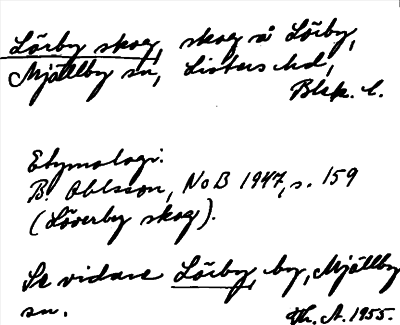 Lörby skog, skog å Lörby,
Mjällby sn, Listers hd,
Blek. l.
Etymologi:
B. Ohlsson, NoB 1947, s. 159
(Löverby skog).
Se vidare Lörby, by, Mjällby
sn.
Th. A. 1955.